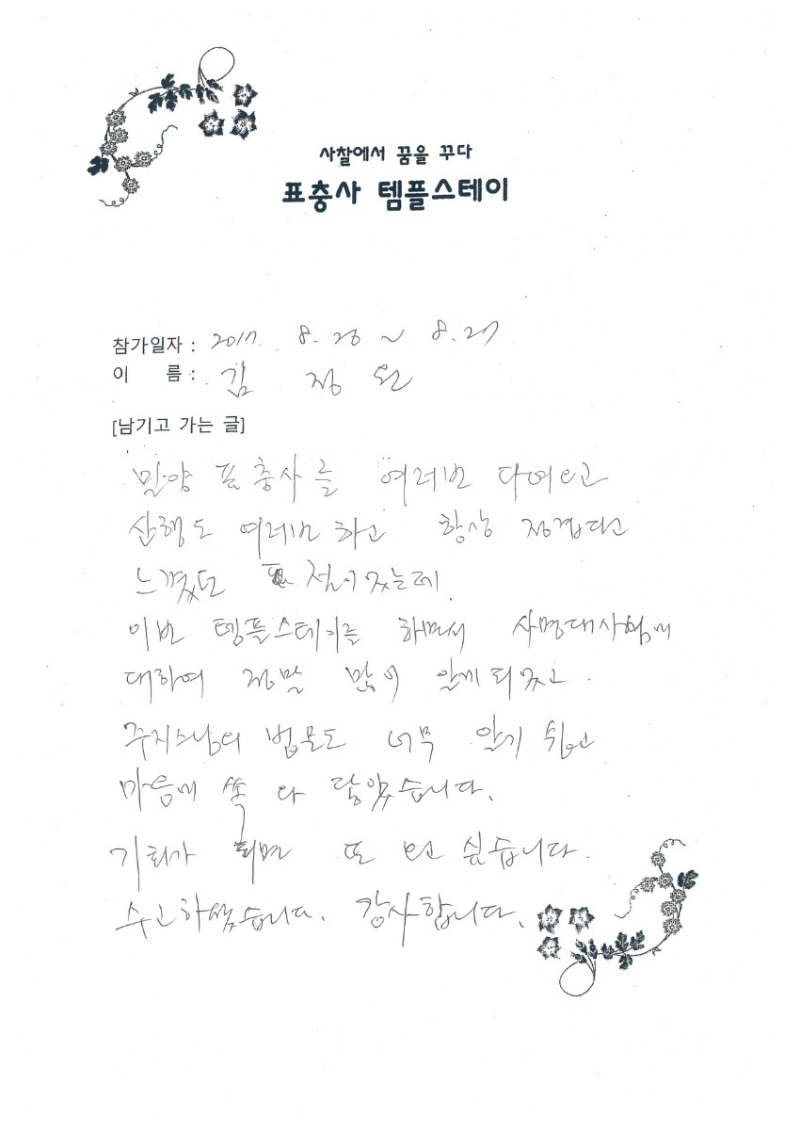 사찰에서 꿈을 꾸다
표충사 템플스테이
참가일자 : 2017. 8. 26 ~ 8. 27
이 름 : 김 정
[남기고 가는 글]
밀양 표충사를 여러번 다녀오고
산행도 여러번 하고 항상 정겹다고
느꼈던 절이었는데
이번 템플스테이를 하면서 사명대사님에
대하여 정말 많이 알게 되었고.
주지스님의 법문도 너무 알기 쉽고
마음에 쏙 다 닿았습니다.
기회가 되면 또 오고 싶습니다.
수고하셨습니다. 감사합니다.